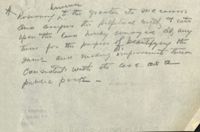 however
Reserving, to the grantor its successors
and assigns the perpetual right to enter
upon the land hereby conveyed at any
time for the purpose of beautifying the
same and making improvements thereon
Consistent with its use as a
public park -